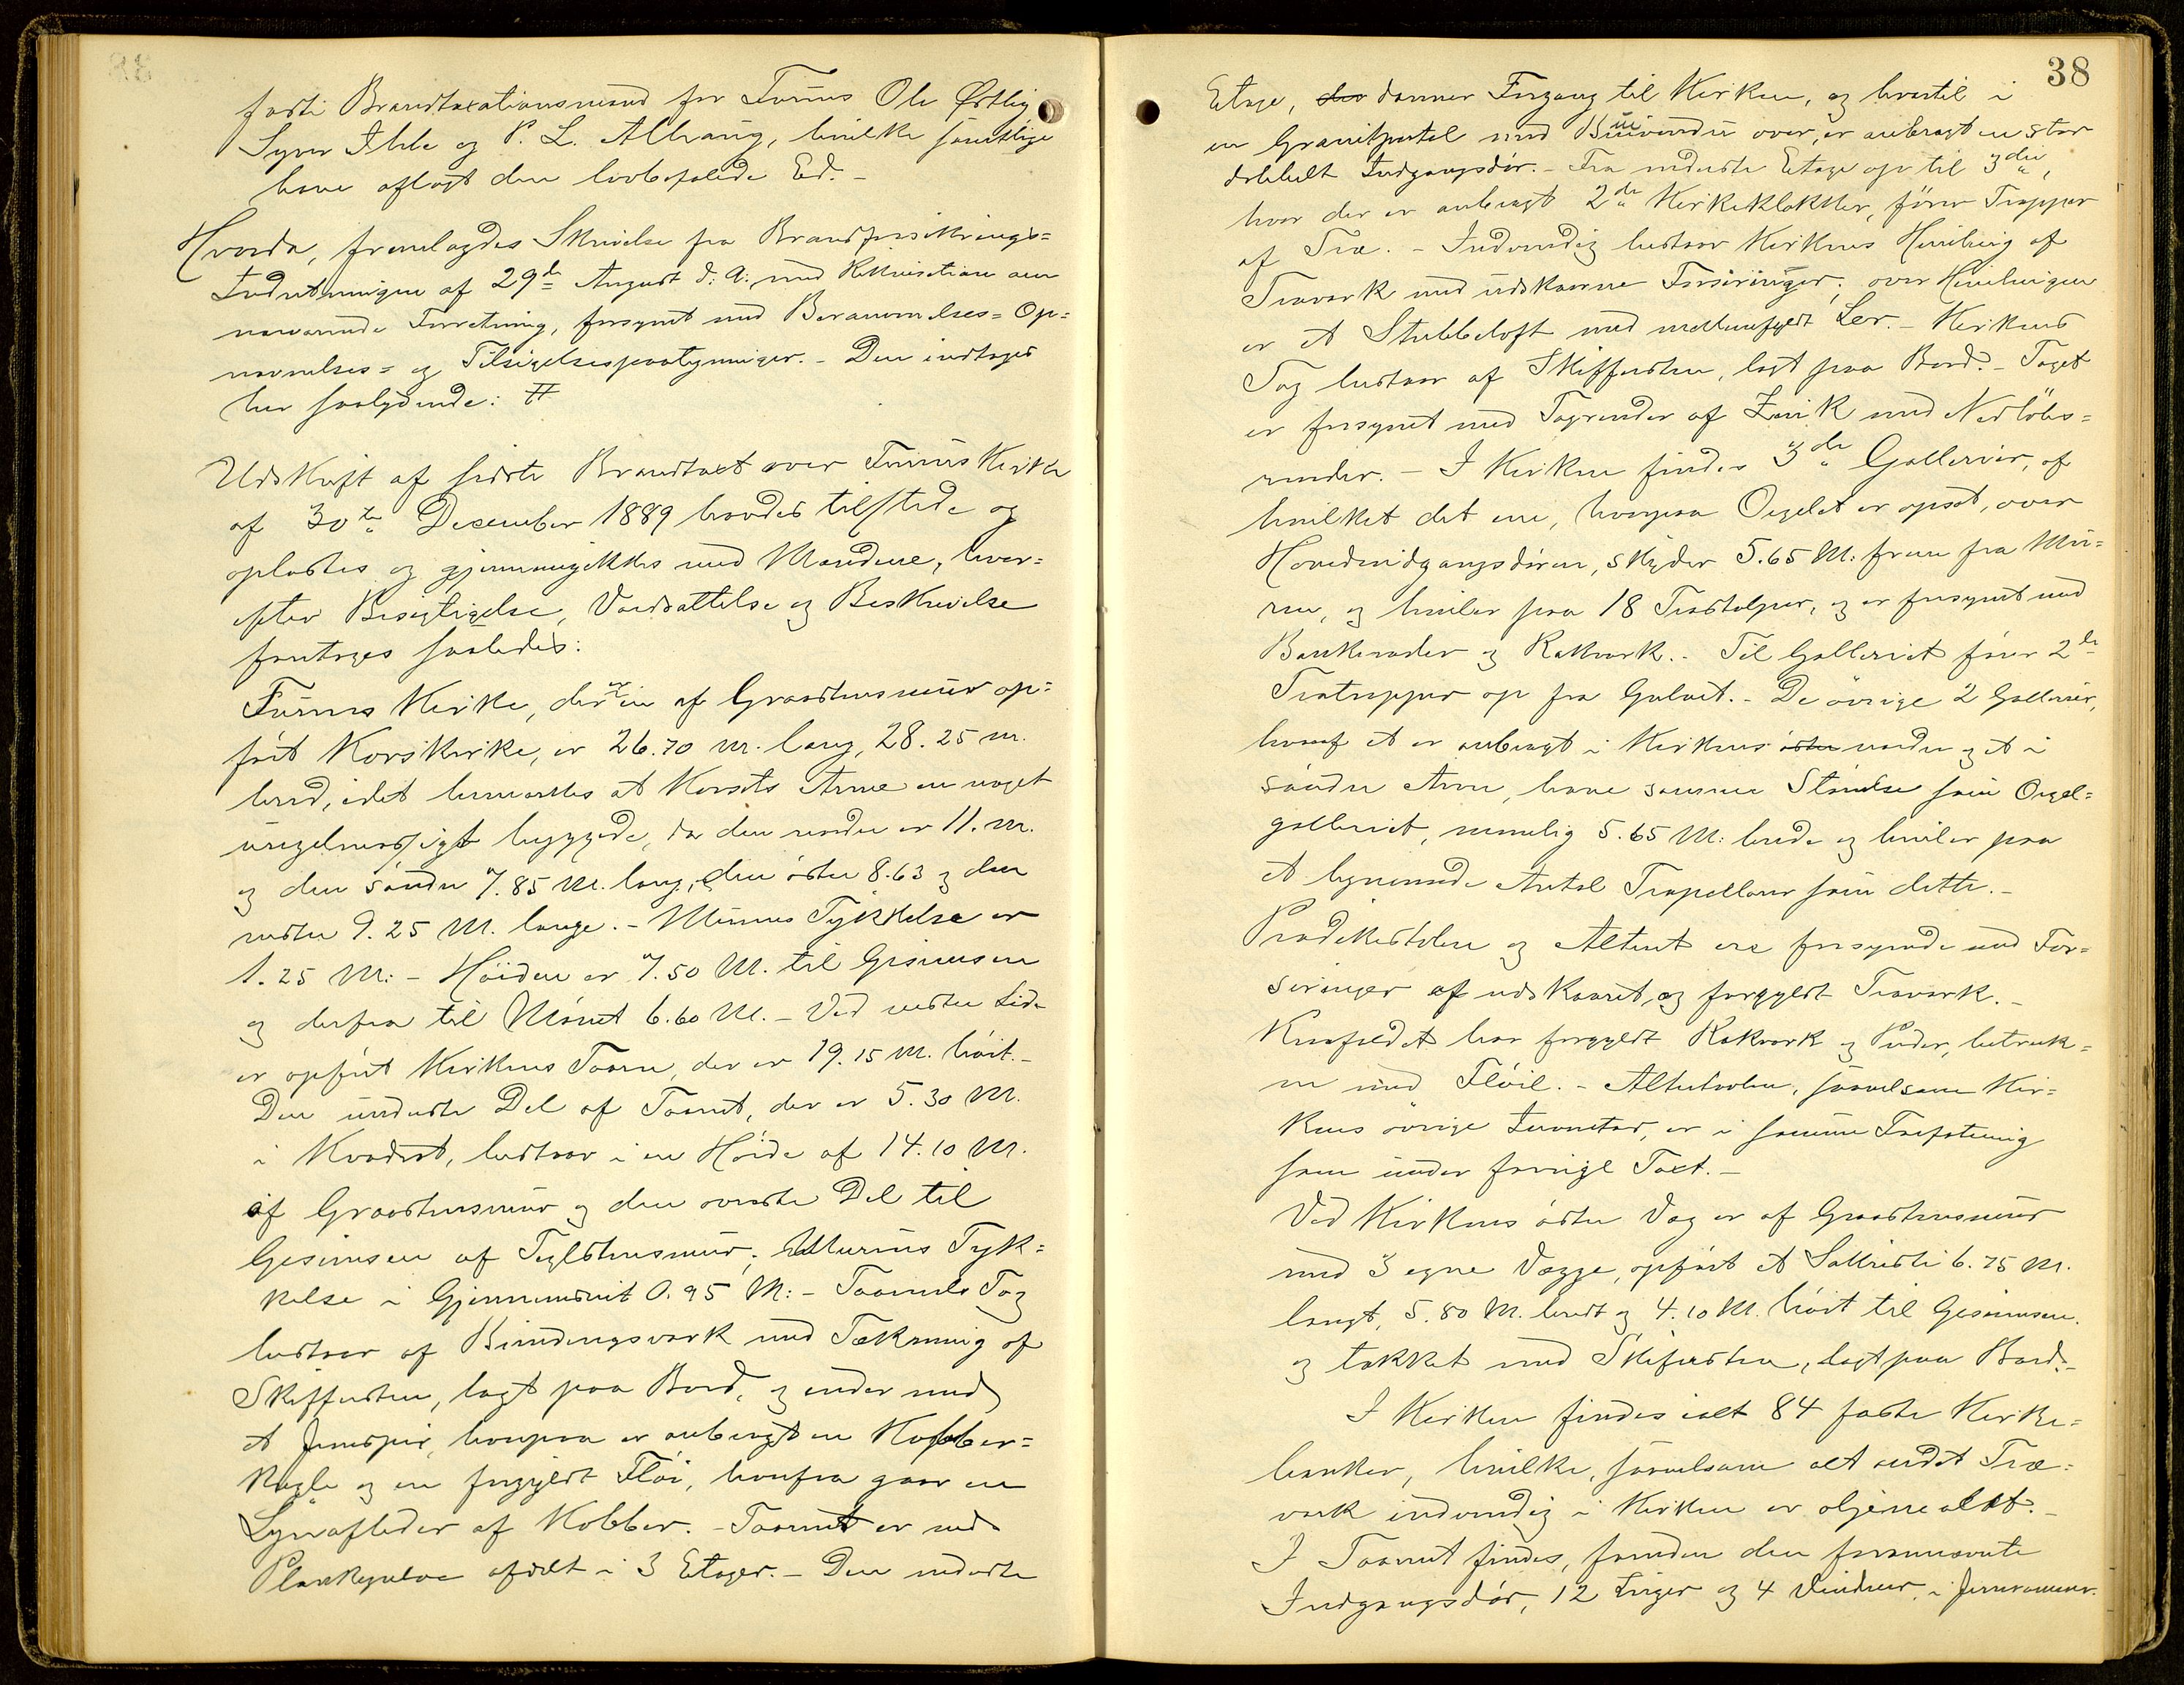 faste Brandtaxationsmænd for Furnes Ole Østlig
Syver Ihle og P. L. Alhaug, hvilke samtlige
have aflagt den lovbefalede Ed. -
Hvorda, fremlagdes Skrivelse fra Brandforsikrings=
Indretningen af 29de August d. A. med Rekvisition om
nærværende Forretning, forsynet med Berammelses= Op=
nævnelses= og Tilsigelsespaategninger. - Den indtages
her saalydende: #
Udskrift af sidste Brandtaxt over Furnes Kirke
af 30te December 1889 havdes tilstede og
oplæstes og gjennemgikkes med Mændene, hvor=
efter Besigtigelse, Værdsættelse og Beskrivelse
foretoges saaledes:
Furnes Kirke, der er en af Graastensmur op=
ført Korskirke, er 26.70 m. lang, 28.25 m.
bred, idet bemærkes at Korsets Arme ere noget
uregelmæssigt byggede, da den nordre er 11. m.
og den søndre 7.85 M. lang, den østre 8.63 og den
vestre 9.25 M. lange. - Murens Tykkelse er
1.25 M: - Høiden er 7.50 M. til Gesimsen
og derfra til Mønet 6.60 M. - Ved vestre Side
er opført Kirkens Taarn, der er 19.15 M. høit. -
Den underste Del af Taarnet, der er 5.30 M.
i Kvadrat, bestaar i en Høide af 14.10 M.
af Graastensmur og den øverste Del til
Gesimsen af Teglstensmur; Murens Tyk=
kelse i Gjennemsnit 0.95 M: - Taarnets Tag
bestaar af Bindingsværk med Tækning af
Skiffersten, lagt paa Bord, og ender med
et Jernspir, hvorpaa er anbragt en Kobber=
Kugle og en forgyldt Fløi, hvorfra gaar en
Lynafleder af Kobber. - Taarnet er med
Plankegulve afdelt i 3 Etager. - Den nederste
38
Etage, der danner Forgang til Kirken, og hvortil i
en Granitportal med Buevindu over, er anbragt en stor
dobbelt Indgangsdør. - Fra nederste Etage op til 3die,
hvor der er anbragt 2de Kirkeklokker, fører Trapper
af Træ. - Indvendig bestaar Kirkens Hvælving af
Træværk med udskaarne Forsiringer; over Hvælvingen
er et Stubbeloft med mellemfyldt Ler. - Kirkens
Tag bestaar af Skiffersten, lagt paa Bord. - Taget
er forsynet med Tagrender af Zink med Nedløbs=
render. - I Kirken findes 3de Gallerier, af
hvilket det ene, hvorpaa Orgelet er opsat, over
Hovedindgangsdøren, skyder 5.65 M. frem fra Mu=
ren, og hviler paa 18 Træstolper, og er forsynet med
Bænkerader og Rækværk. - Til Galleriet fører 2de
Trætrapper op fra Gulvet. - De øvrige 2 Gallerier,
hvoraf et er anbragt i Kirkens østre nordre og et i
søndre Arm, have samme Størrelse som Orgel=
galleriet, nemlig 5.65 M: brede og hviler paa
et lignende Antal Træpillarer som dette. -
Prædikestolen og Alteret ere forsynede med For=
siringer af udskaaret, og forgyldt Træværk. -
Knæfaldet har forgyldt Rækværk og Puder, betruk=
ne med Fløil. - Altertavlen, saavelsom Kir=
kens øvrige Inventar, er i samme Forfatning
som under forrige Taxt. -
Ved Kirkens østre Væg er af Graastensmur
med 3 egne Vægge, opført et Sakristi 6.75 M.
langt, 5.80 M. bredt og 4.10 M. høit til Gesimsen,
og tækket med Skifersten, lagt paa Bord. -
I Kirken findes ialt 84 faste Kirke=
bænker, hvilke, saavelsom alt andet Træ=
værk indvendig i Kirken er oljemalet. -
I Taarnet findes, foruden den forannævnte
Indgangsdør, 12 Luger og 4 Vinduer i Jernrammer.